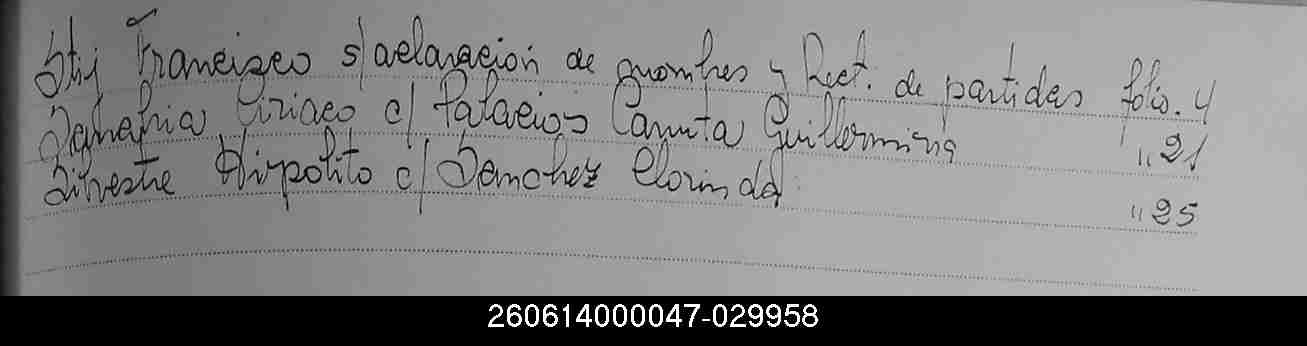 Francisco s/ aclaración de nombres y Rect. de partidas folio. 4
Ciriaco c/ Palacios Canuta Guillermina " 21
Silvestre Hipolito c/ Sanchez Clorinda " 25
260614000047-029958